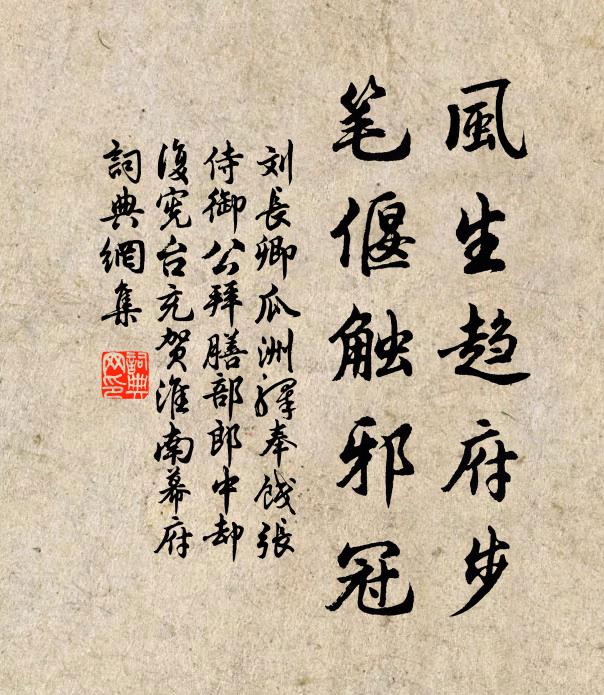 風生趋府步
笔偃触邪冠
刘長卿瓜洲驛奉饯張
侍御公拜膳部郎中却
復宪台充贺淮南幕府
詞典網集
詞典网印